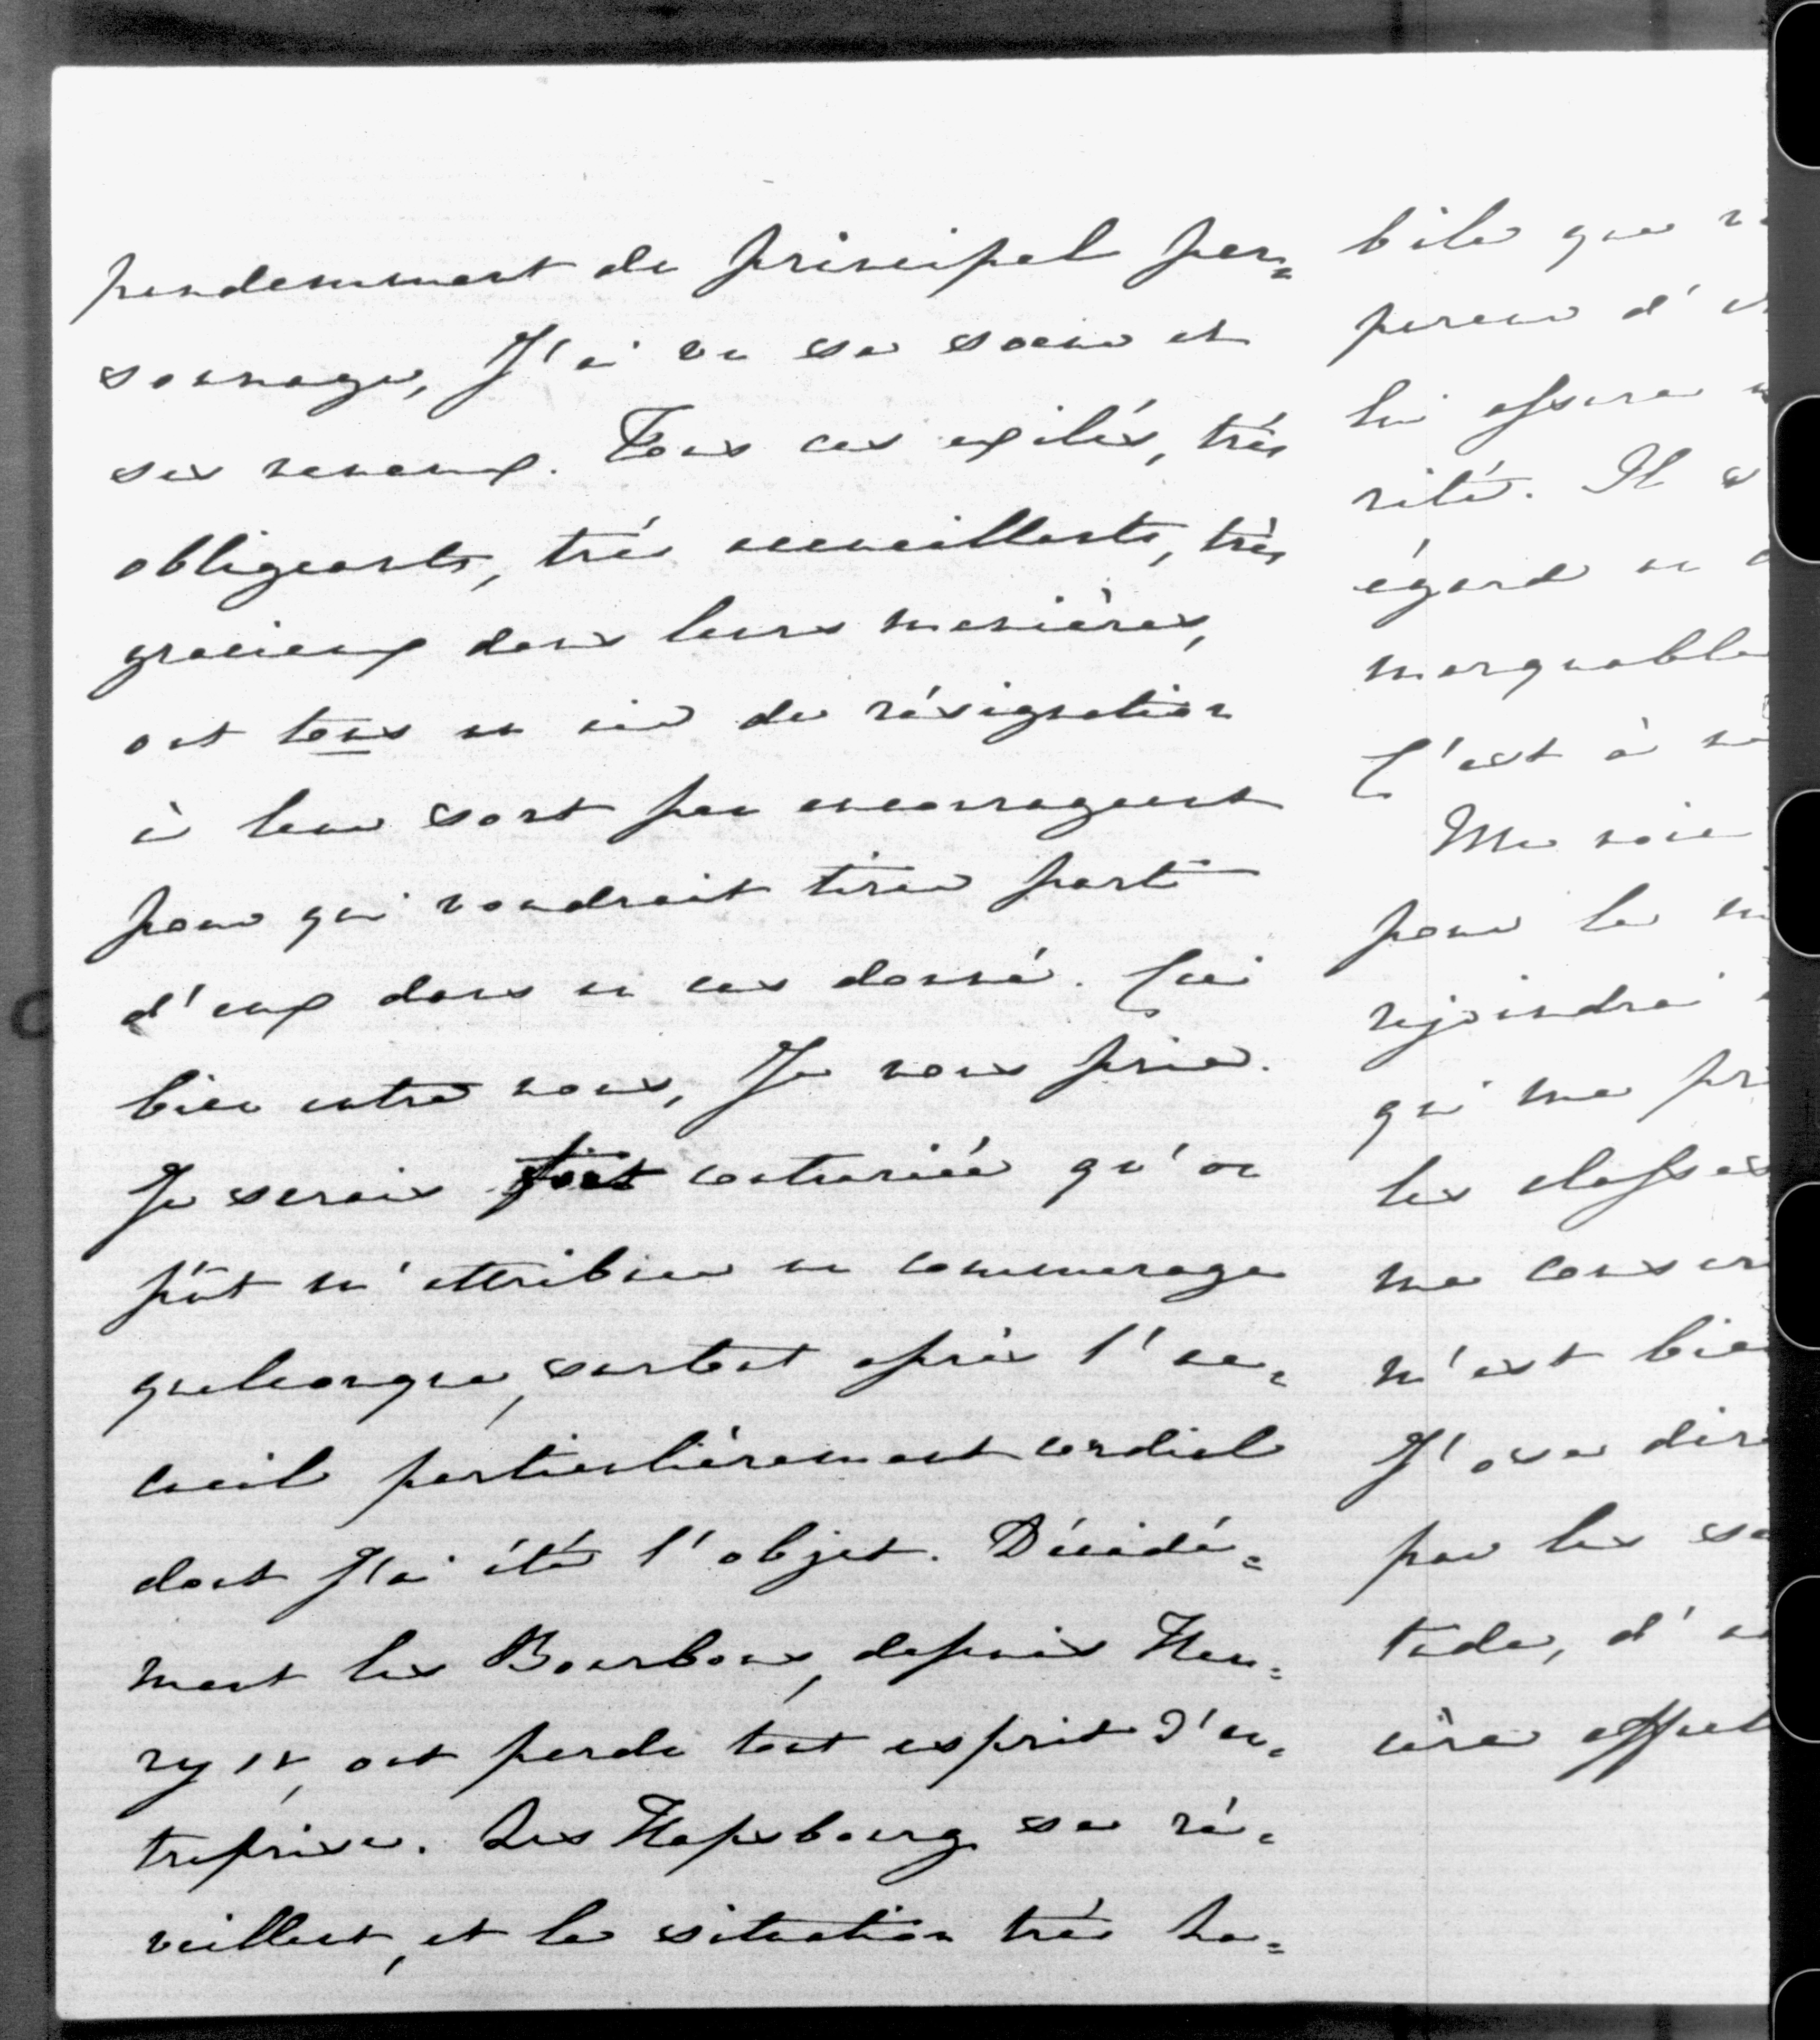 pendemment du principal per=
sonnage, J'ai vu sa soeur et
ses neveux. Tous ces exilés, très
obligeants, très accueillants, très
gracieux dans leurs manières,
ont tous un air de résignation
à leur sort peu encourageant
pour qui voudrait tirer parti
d'eux dans un cas donné. Ceci
bien entre nous, Je vous prie.
Je serais fort contrariée qu'on
pût m'attribuer un commerage
quelconque, surtout après l'ac=
cueil particulièrement cordial
dont J'ai été l'objet. Décidé=
ment les Bourbons, depuis Hen=
ry IV, ont perdu tout esprit d'en=
treprise. Les Hapsbourg se ré=
veillent, et la situation très ha=
bile que
pereur d'
lui assure
rité. Il
égard un
marquable
C'est à
Me voici
pour la
rejoindrai
qui me
les classes
me
m'est bien
J'ose dire
par les
tude, d'
cère